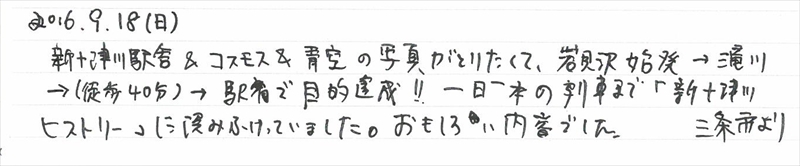 2016.9.18(日)
新十津川駅舎 & コスモス & 青空の写真がとりたくて、岩見沢始発 → 滝川
→(徒歩40分)→ 駅着で目的達成!! 一日一本の列車まで「新十津川
ヒストリー」に読みふけっていました。おもしろい内容でした。 三条市より